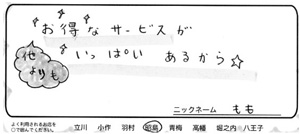 お得なサービスが
他よりも
いっぱい あるから☆
ニックネーム もも
よく利用されるお店を○で囲んでください。
立川 小作 羽村 昭島 青梅 高幡 堀之内 八王子